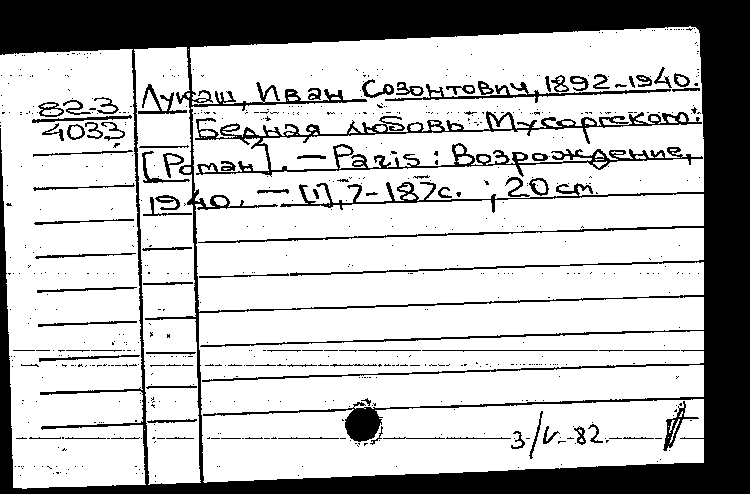 82-3
4033
Лукаш, Иван Созонтович, 1892-1940.
Бедная любовь Мусоргского:
[Роман]. — Paris : Возрождение,
1940. — [1], 7-187с. ; 20 cm.
3/V-82.